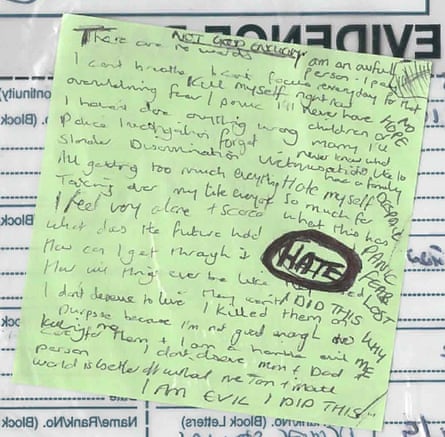 EVIDENCE
NOT GOOD ENOUGH
There are no words
I am an awful person. I pay every day for that
I can't breathe I can't focus
overwhelming fear / panic
Kill myself right now
I'll never have children or marry
NO HOPE
I haven't done anything wrong
I'll never know what it's like to have a family
Police investigation forget
Slander Discrimination Victimisation
DESPAIR
All getting too much everything
Hate myself so much for what this has
Taking over my life everyone
I feel very alone + scared
PANIC
FEAR
LOST
What does the future hold
How can I get through it
HATE
How will things ever be like
I don't deserve to live
I DID THIS
WHY ME
I killed them on
purpose because I'm not good enough to
care for them + I am a horrible evil
person
I don't deserve mum + Dad
killing me
world is better off without me
I AM EVIL I DID THIS
(Block Letters)
Name/Rank/No.
(Block